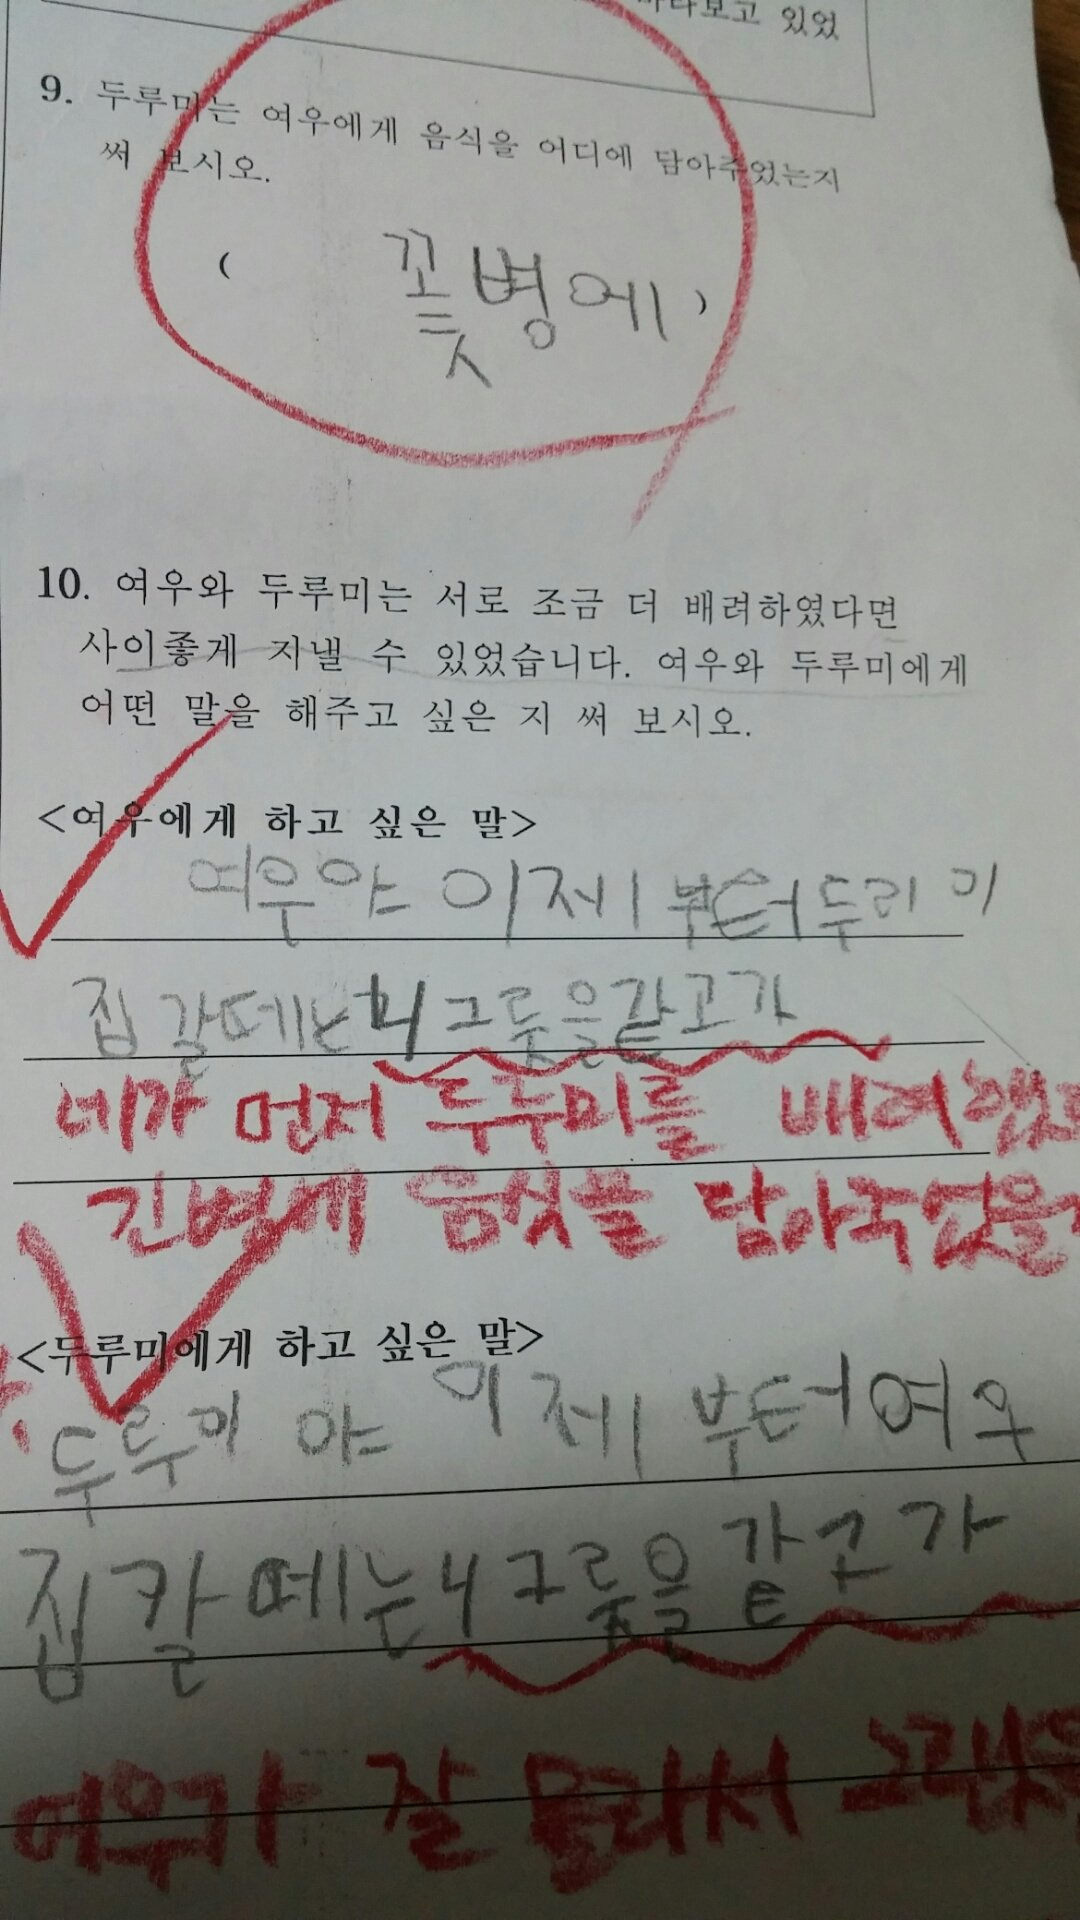 바라보고 있었
9. 두루미는 여우에게 음식을 어디에 담아주었는지
써 보시오.
( 꽃병에 )
10. 여우와 두루미는 서로 조금 더 배려하였다면
사이좋게 지낼 수 있었습니다. 여우와 두루미에게
어떤 말을 해주고 싶은 지 써 보시오.
<여우에게 하고 싶은 말>
여우야 이제부터 두리미
집 갈떼는 니 그릇을 갇고가
네가 먼저 두루미를 배려했
긴병에 음식을 담아주었을
<두루미에게 하고 싶은 말>
두루미야 이제부터 여우
집 갈떼는 니 그릇을 갇고가
여우가 잘 몰라서 그랬을